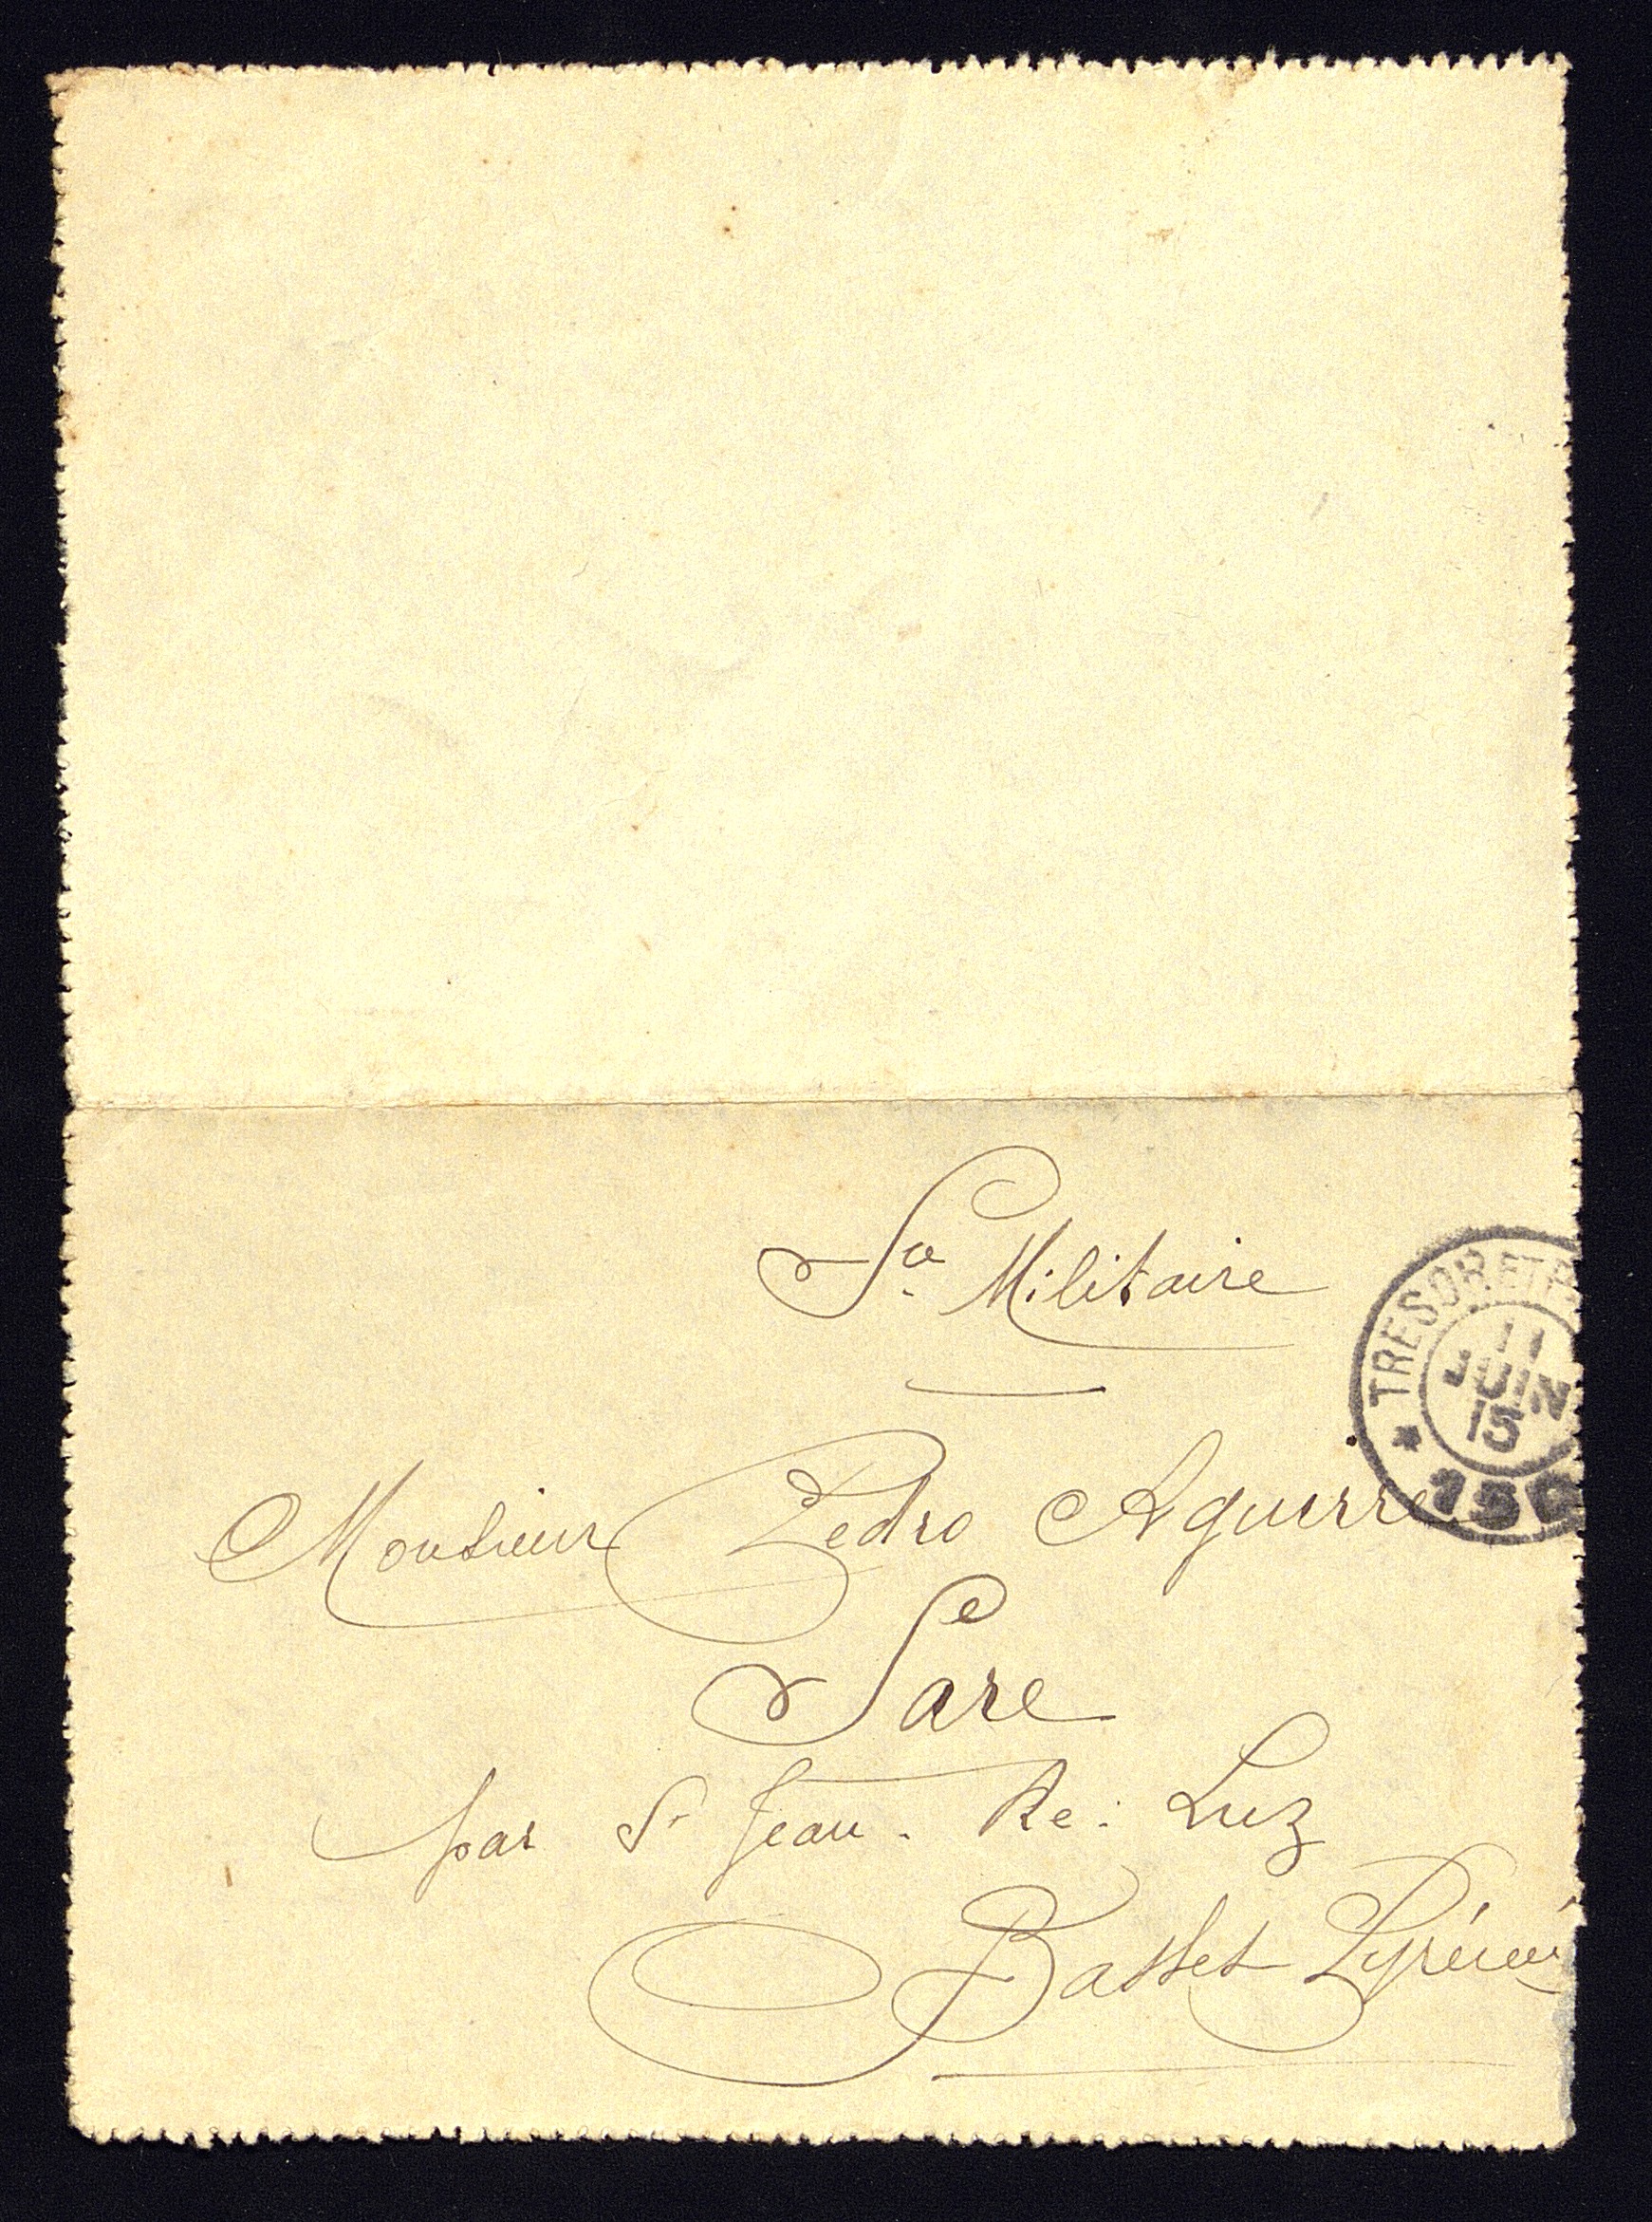 Sce Militaire
TRESOR ET P
11
JUIN
15
* 150
Monsieur Pedro Aguirre
Sare
par St Jean. De: Luz
Basses Pyrénées